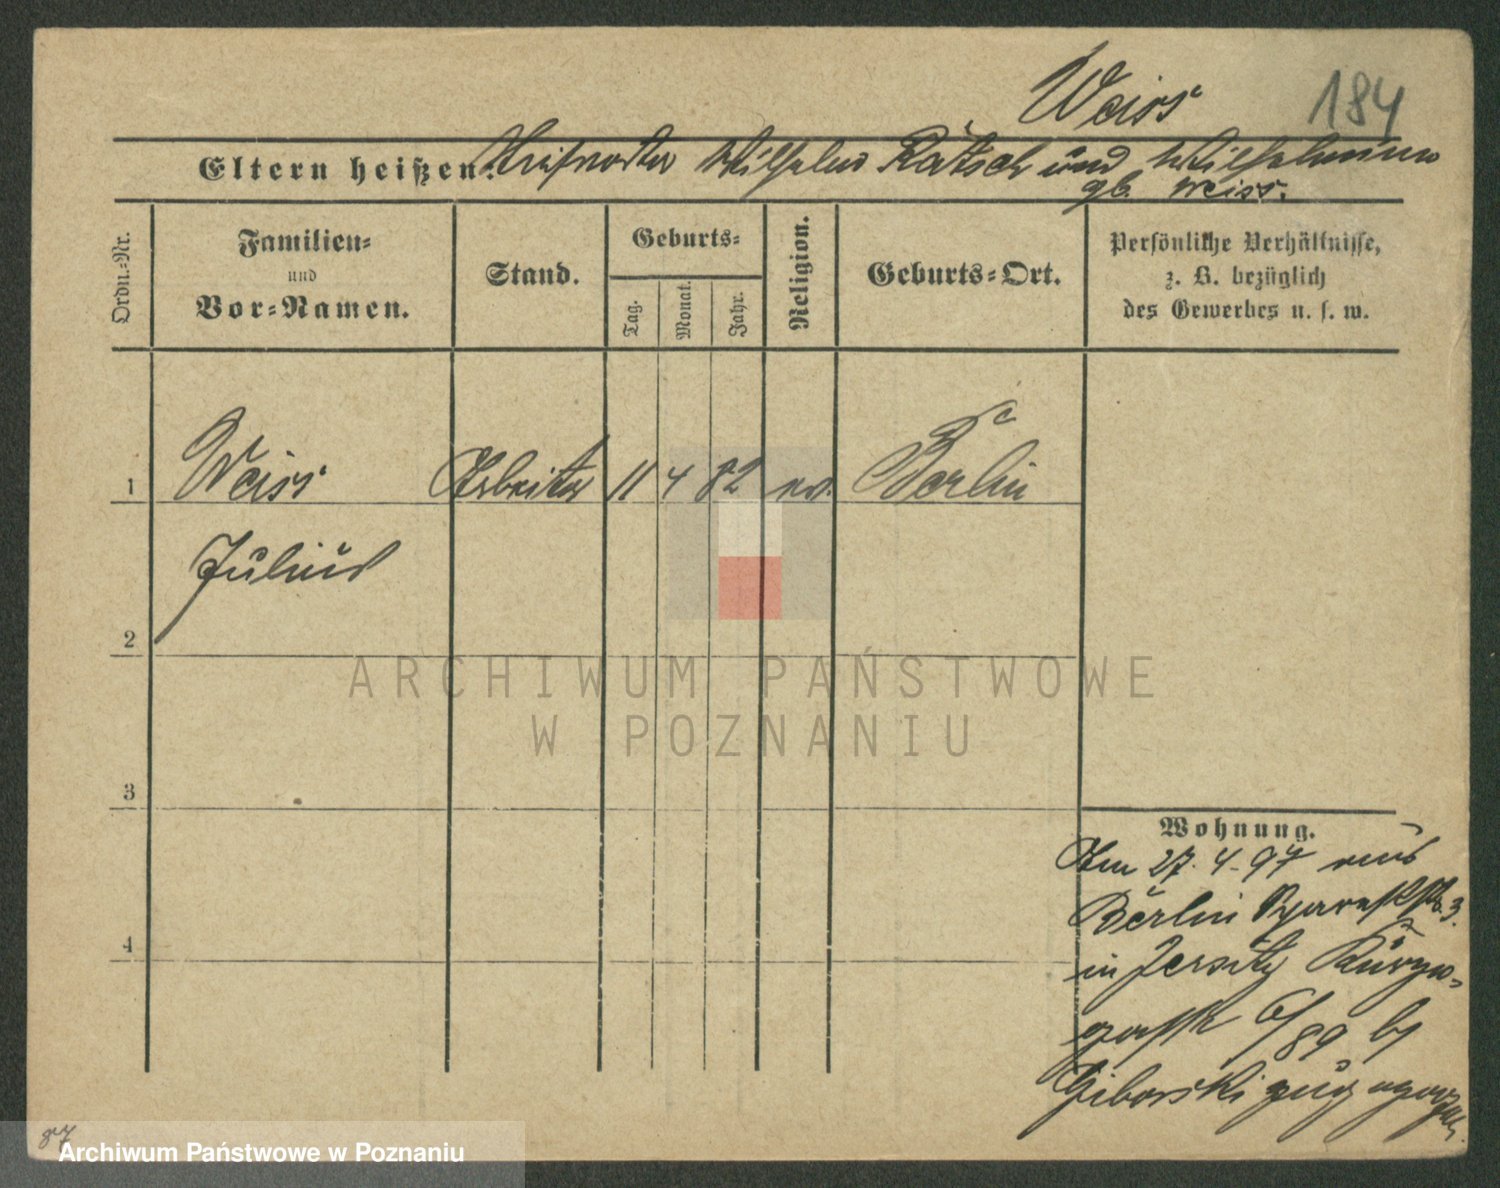 Weiss
184
Eltern heißen: Wilhelm Rätsch und Wilhelmine
gb. Weiss.
Ordn.-Nr.
Familien-
und
Vor-Namen.
Stand.
Geburts-
Tag.
Monat.
Jahr.
Religion.
Geburts-Ort.
Persönliche Verhältnisse,
z. B. bezüglich
des Gewerbes u. s. w.
1 Weiss Arbeiter 11 4 82 ev. Berlin
Julius
2
ARCHIWUM PAŃSTWOWE
W POZNANIU
3
4
Wohnung.
Am 27.4.97 aus
Berlin 3.
in Jersitz
6/89 by
Giborski
87
Archiwum Państwowe w Poznaniu